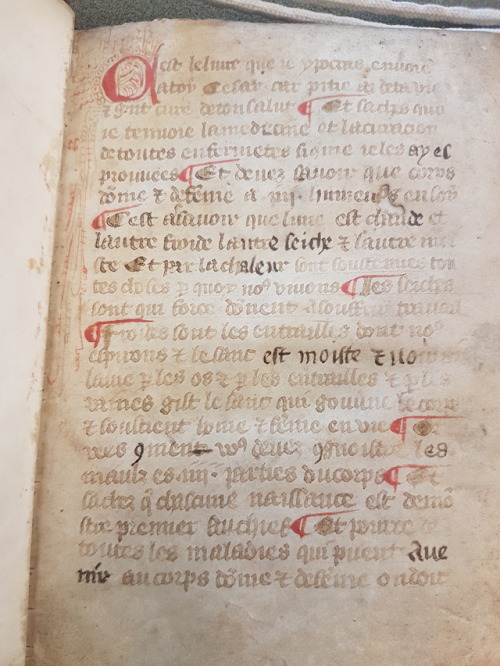 Cest le liure que ie ypocras enuoie
a toy Cesar car pitie ai de ta vie
⁊ gnt cure de ton salut ¶ Et saches que
ie tenuoie la medecine et la curacion
de toutes enfermetes si gme ie les ay es
prouuees ¶ Et deuez sauoir que corps
dōme ⁊ de fēme a .iiij. humeurs en soy
¶ Cest asauoir que lune est chaude et
lautre froide lautre seiche ⁊ lautre moi
ste Et par la chaleur sont soustenues tou
tes choses p quoy noꝰ viuons ¶ Les seiches
sont qui force dōnent a souffrir trauail
¶ Froides sont les entrailles dont noꝰ
espirons ⁊ le sanc est moiste ⁊
p les os ⁊ p les entrailles ⁊ p les
vaines gist le sanc qui gouūne le corps
⁊ soustient home ⁊ fēme en vie ¶ Or
ꝯment voꝰ deuez ꝯgnoistre les
maulx es .iiij. parties du corps ¶ Et
sachez q̄ chascune naissance est demō
stre premier au chief ¶ Et pource de
toutes les maladies qui puent Aue
nir au corps dōme ⁊ de fēme on doit